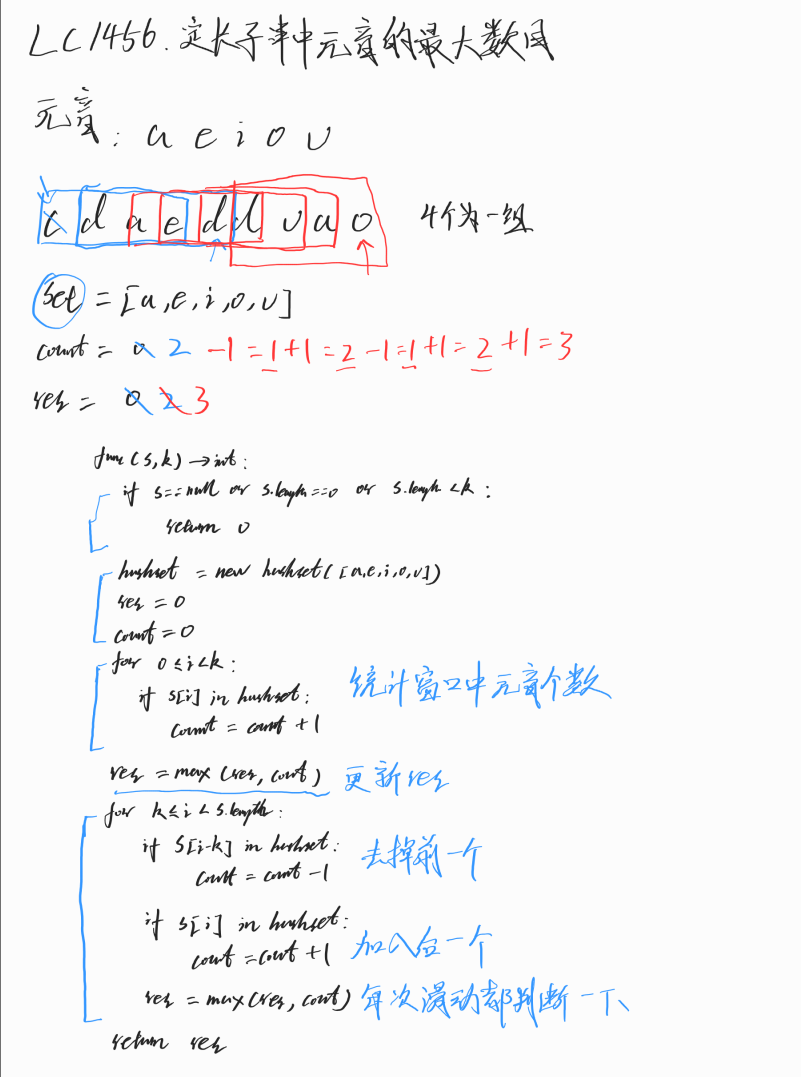 LC1456. 定长子串中元音的最大数目
元音: a e i o u
c d a e d d u a o 4个为一组
set = [a,e,i,o,u]
count = 0 2 -1=1+1=2-1=1+1=2+1=3
res = 0 2 3
func(s,k)→int:
if s==null or s.length==0 or s.length<k:
return 0
hashset = new hashset([a,e,i,o,u])
res = 0
count = 0
for 0≤i<k:
if s[i] in hashset: 统计窗口中元音个数
count = count +1
res = max(res, cout) 更新res
for k≤i<s.length:
if s[i-k] in hashset: 去掉前一个
count = count -1
if s[i] in hashset:
cout = cout +1 加入后一个
res = max(res, cout) 每次滑动都判断一下
return res